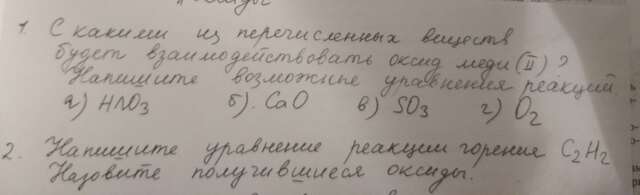 1. С какими из перечисленных веществ
будет взаимодействовать оксид меди (II)?
Напишите возможные уравнения реакций.
а) HNO3 б). CaO в) SO3 г) O2
2. Напишите уравнение реакции горения C2H2
Назовите получившиеся оксиды.